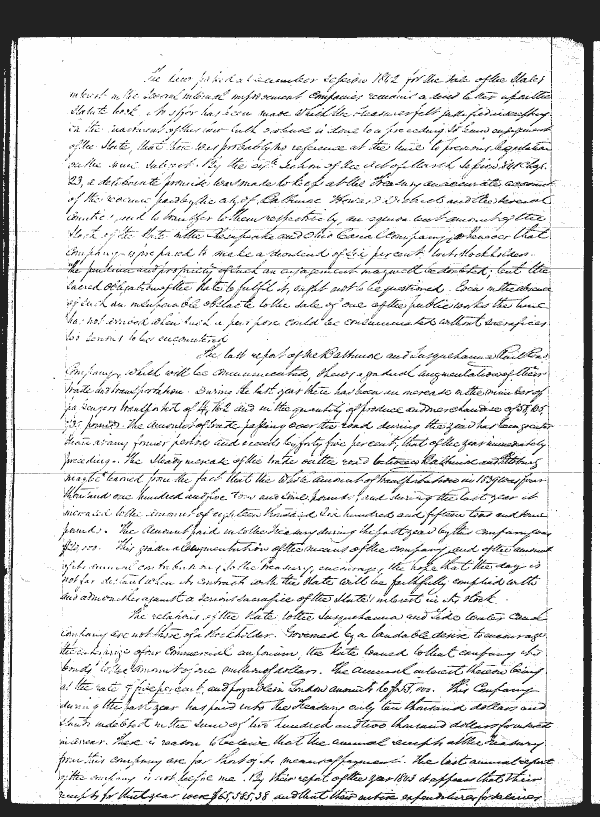 The Law passed at December Session 1842 for the sale of the State's
interest in the several internal improvement companies remains a dead letter upon the
Statute book. No offer has been made
in the enactment of this law
of the State, that there was probably no reference at the time to previous legislation
on the same subject. By the
23, a deliberate provision was made to keep at the Treasury an accurate account
of the revenue paid by the city of Baltimore Howard District and the several
counties, and to transfer to them respectively an equivalent amount of the
Stock of the State in the Chesapeake and Ohio Canal Company, whenever that
Company is prepared to make a dividend of six per cent to its stockholders.
The prudence and propriety of such an engagement may well be doubted, but the
sacred obligation of the State to fulfil it, ought not to be questioned. Even in the absence
of such an insuperable obstacle to the sale of one of the public works the time
has not arrived when such a purpose could be consummated without sacrifices
too serious to be encountered.
The last report of the Baltimore and Susquehanna Rail Road
Company, which will be communicated, shows a gradual augmentation of their
trade and transportation. During the last year there has been an increase in the number of
passengers transported of 4,162 and in the quantity of produce and merchandise of
pounds. The amount of trade passing over the road during the year has been greater
than at any former period and exceeds by forty five per cent, that of the year immediately
preceding. The steady increase of the trade on the road between Baltimore and
may be learned from the fact that the whole amount of transportation in 1839 was four
thousand one hundred and five tons and some pounds, and during the last year it
increased to the amount of eighteen thousand six hundred and fifteen tons and some
pounds. The amount paid into the Treasury during the past year by this company was
This gradual augmentation of the means of the company and of the amount
of its annual contributions to the Treasury, encourages the hope that the day is
not far distant when its contract with the State will be faithfully complied with
and admonishes against a serious sacrifice of the State's interest in its stock.
The relations of the State to the Susquehanna and Tide Water Canal
Company are not those of a Stockholder. Governed by a laudable desire to encourage
the enlarging of our Commercial emporium, the State loaned to that company its
bonds to the amount of one million of dollars. The annual interest thereon being
at the rate of five per cent, and payable in London amounts to
This Company
during the past year has paid into the Treasury only ten thousand dollars and
stands indebted in the sum of two hundred and two thousand dollars for interest
in arrear. There is reason to believe that the annual receipts at the Treasury
from this company are far short of its means of payment. The last annual report
of the company is not before me. By their report of the year 1843 it appears that their
receipts for that year were $65,585,38 and that their entire expenditures for